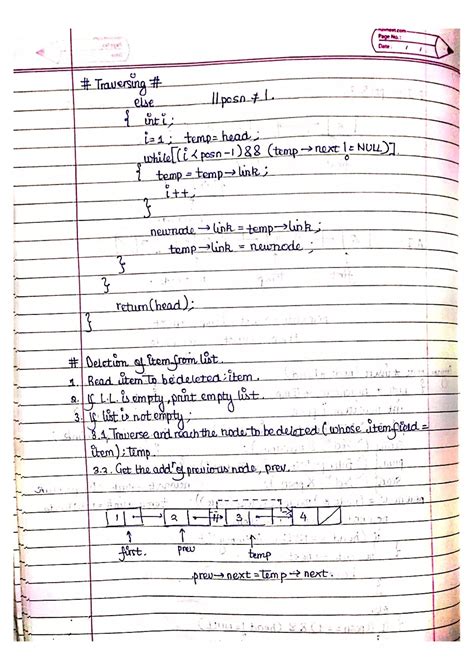 Page No.:
Date: / /
# Traversing #
else //posn ≠ 1.
{ int i;
i=1; temp=head;
while[(i<posn-1)&& (temp→next != NULL)]
{ temp = temp→link;
i++;
}
newnode→link = temp→link;
temp→link = newnode;
}
}
return(head);
}
# Deletion of item from list.
1. Read item to be deleted: item.
2. If L.L. is empty, print empty list.
3. If list is not empty;
3.1 Traverse and reach the node to be deleted (whose itemfield =
item); temp.
3.2. Get the add of previous node, prev.
1 2 3. 4
first. prev temp
prev→next = temp→next.